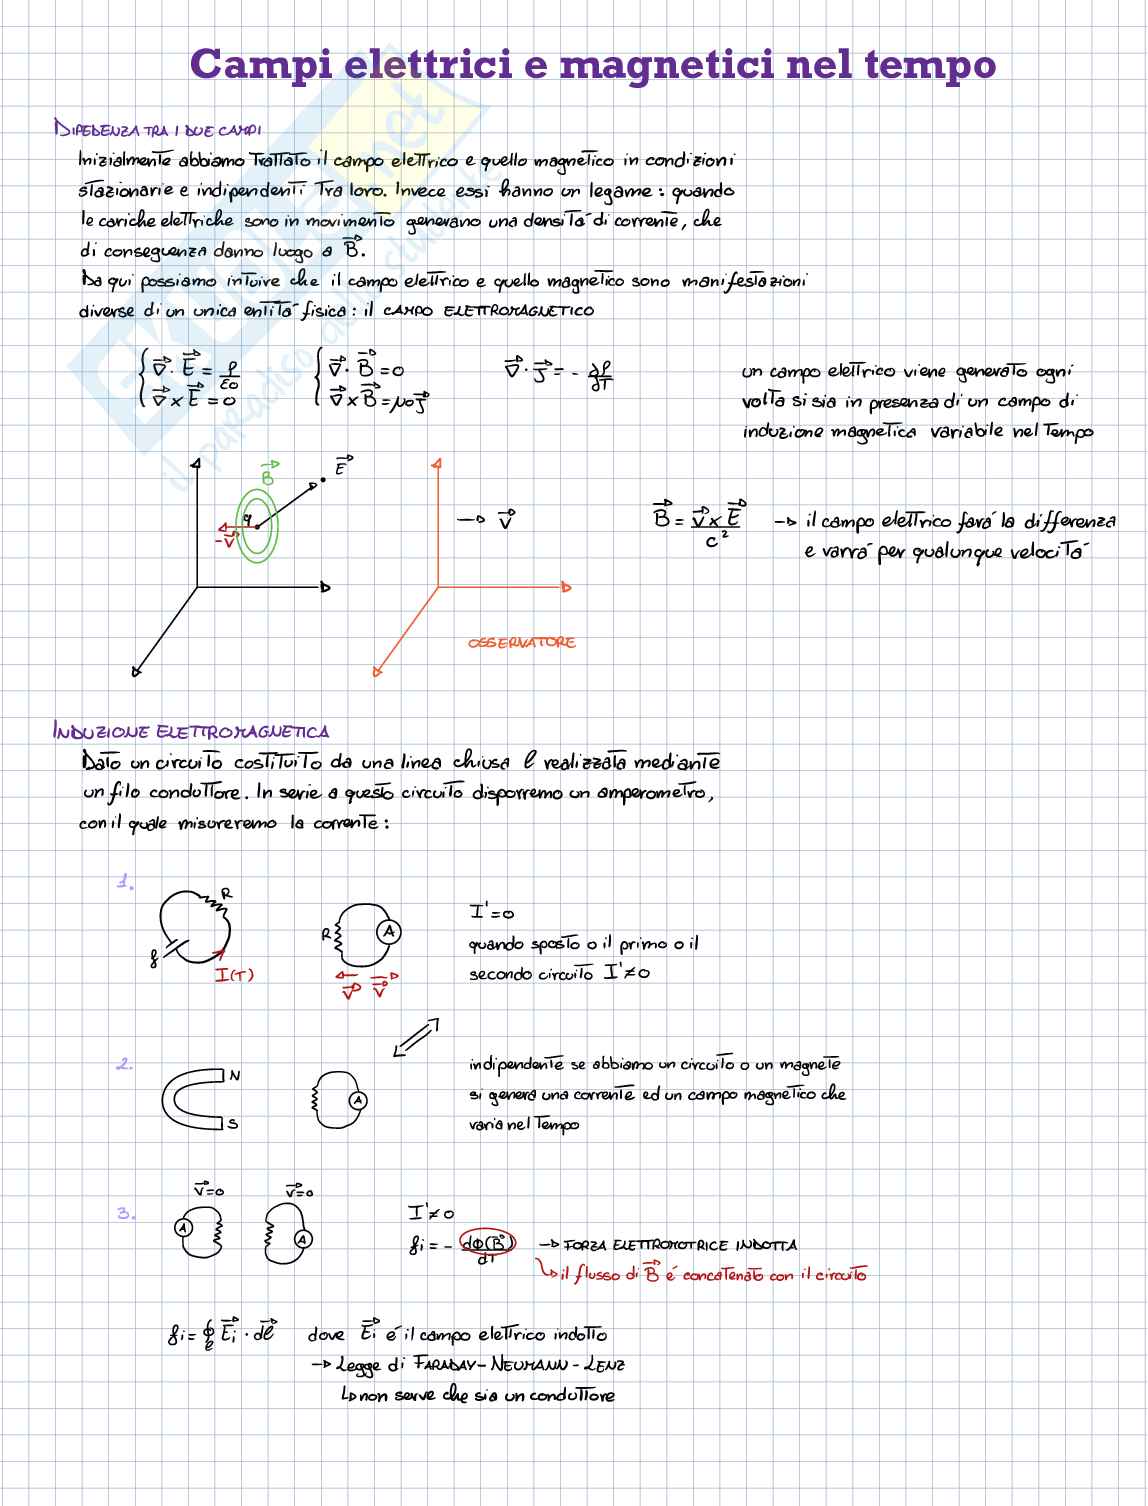 Campi elettrici e magnetici nel tempo
DIPEDENZA TRA I DUE CAMPI
Inizialmente abbiamo trattato il campo elettrico e quello magnetico in condizioni
stazionarie e indipendenti tra loro. Invece essi hanno un legame: quando
le cariche elettriche sono in movimento generano una densità di corrente, che
di conseguenza danno luogo a B⃗.
Da qui possiamo intuire che il campo elettrico e quello magnetico sono manifestazioni
diverse di un unica entità fisica: il CAMPO ELETTROMAGNETICO
{ ∇⃗ · E⃗ = ρ/ε0
∇⃗ × E⃗ = 0
{ ∇⃗ · B⃗ = 0
∇⃗ × B⃗ = μ0 J⃗
∇⃗ · J⃗ = - ∂ρ/∂T
un campo elettrico viene generato ogni
volta si sia in presenza di un campo di
induzione magnetica variabile nel tempo
B⃗
E⃗
q
-v⃗
→ v⃗
OSSERVATORE
B⃗ = v⃗ × E⃗ / c² → il campo elettrico farà la differenza
e varrà per qualunque velocità
INDUZIONE ELETTROMAGNETICA
Dato un circuito costituito da una linea chiusa ℓ realizzata mediante
un filo conduttore. In serie a questo circuito disporremo un amperometro,
con il quale misureremo la corrente:
1.
R
f
I(T)
R
A
v⃗ v⃗
I'=0
quando sposto o il primo o il
secondo circuito I'≠0
2.
N
S
A
indipendente se abbiamo un circuito o un magnete
si genera una corrente ed un campo magnetico che
varia nel tempo
3.
v⃗=0
v⃗=0
A
A
I'≠0
fi = - dΦ(B⃗)/dT → FORZA ELETTROMOTRICE INDOTTA
↳ il flusso di B⃗ é concatenato con il circuito
fi = ∮ℓ E⃗i · dℓ⃗ dove E⃗i é il campo elettrico indotto
→ Legge di FARADAY-NEUMANN-LENZ
↳ non serve che sia un conduttore